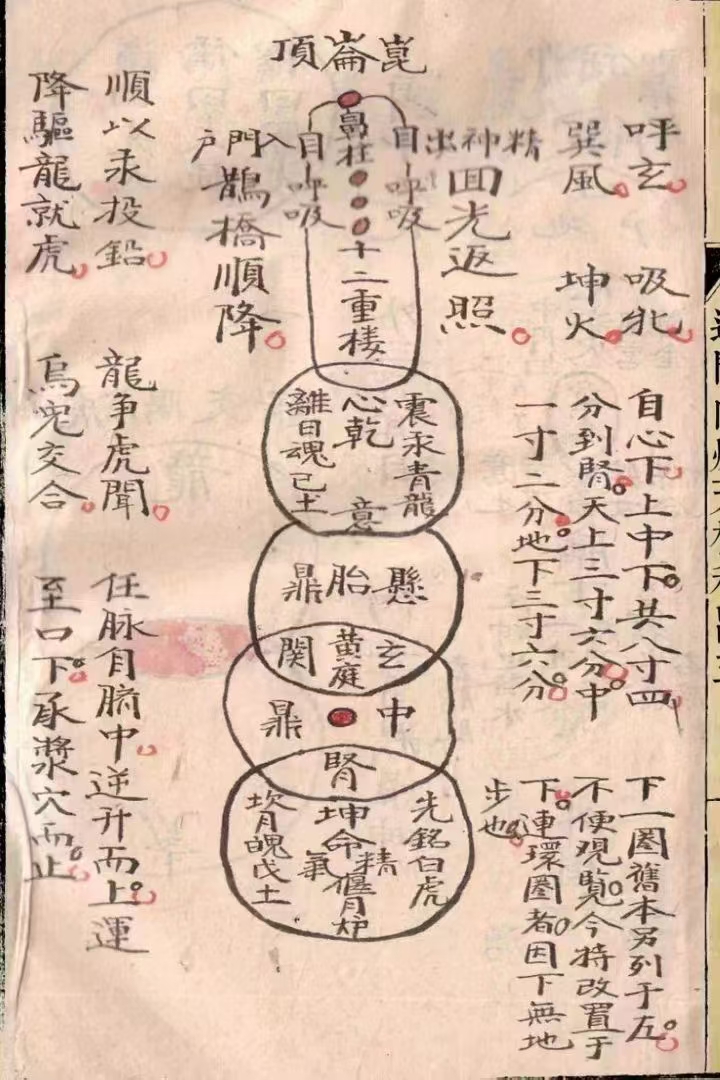 崑崙頂
呼玄。吸牝。
巽風。坤火。
自心下。上中下。共八寸四
分到腎。天上三寸六分。中
一寸二分。地下三寸六分。
下一圈舊本另列于左。
不便观覧。今特改置于
下。連環圈者。因下無地
步也。
精神出
自呼吸
回光返照。
鼻柱
十二重楼
自呼吸
入門户
鵲橋順降。
震汞青龍
心乾
意
離日魂己土
懸胎鼎
玄黄庭関
中鼎
腎
先銘白虎
坤命
精氣
偃月炉
坎月魄戊土
順以汞投鉛。
降驅龍就虎。
龍争虎聞。
烏兔交合。
任脉自臍中。逆升而上。運
至口下。承漿穴而止。